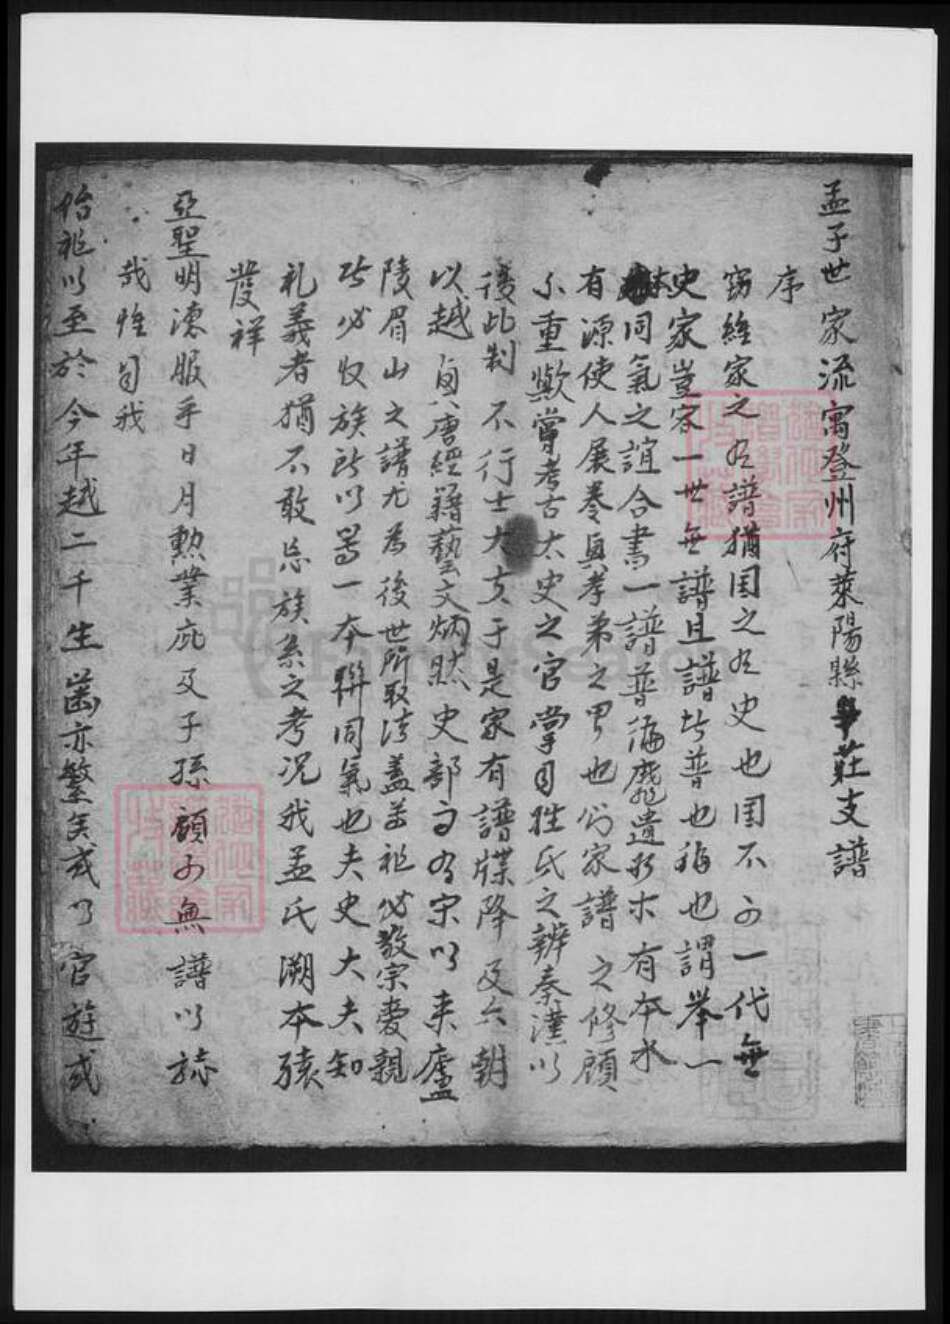 孟子世家流寓登州府萊陽縣莊支譜
序
窃維家之有譜猶国之有史也国不可一代無
史家豈容一世無譜且譜者普也徧也謂举一
本同氣之誼合書一譜普徧靡遺於木有本水
有源使人展卷興孝弟之思也則家譜之修顧
不重歟嘗考古太史之官掌司姓氏之辨秦漢以
後此制不行士大夫于是家有譜牒降及六朝
以越有唐經籍藝文炳然史部而有宋以来廬
陵眉山之譜尤為後世所取法盖尊祖必敬宗愛親
者必收族所以篤一本聯同氣也夫史大夫知
礼義者猶不敢忘族系之考况我孟氏溯本猿
發祥
亞聖明德服乎日月勲業庇及子孫顧可無譜以誌
哉惟自我
始祖以至於今年越二千生齒亦繁矣或以官遊或